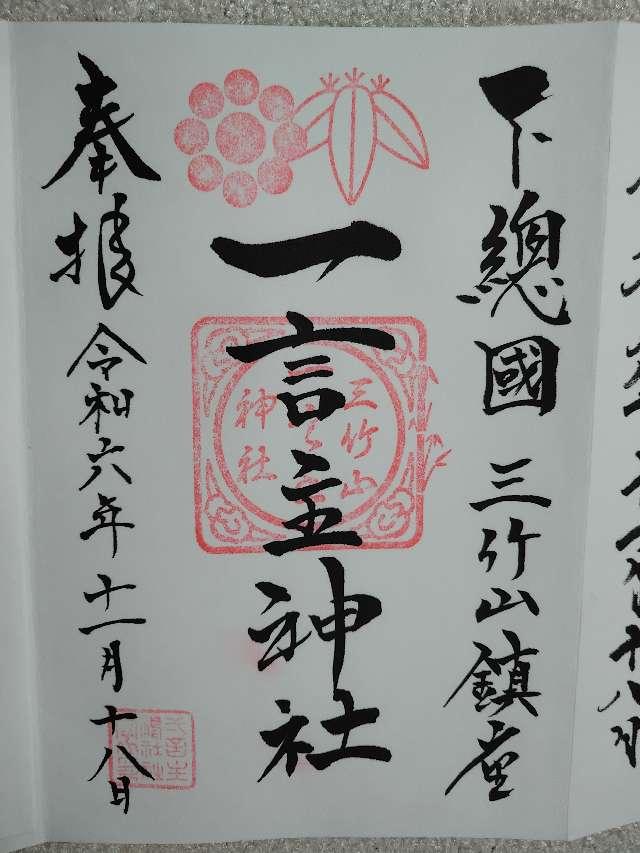 下總國 三竹山鎮座
一言主神社
三竹山
神社
奉拝 令和六年十一月十八日